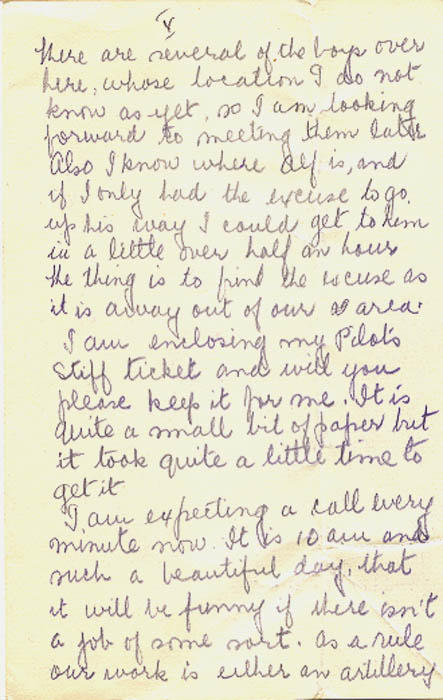 V
there are several of the boys over
here, whose location I do not
know as yet, so I am looking
forward to meeting them later
Also I know where Alf is, and
if I only had the excuse to go
up his way I could get to him
in a little over half an hour
the thing is to find the excuse as
it is away out of our area.
I am enclosing my Pilot's
stiff ticket and will you
please keep it for me. It is
quite a small bit of paper but
it took quite a little time to
get it
I am expecting a call every
minute now. It is 10 am and
such a beautiful day, that
it will be funny if there isn't
a job of some sort. As a rule
our work is either an artillery